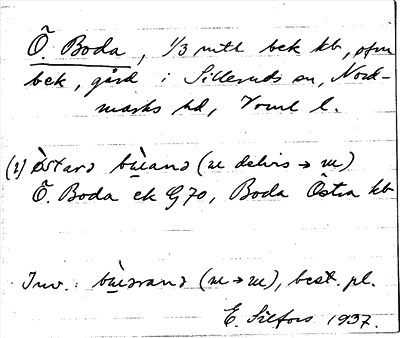 Ö. Boda, 1/3 mtl bek kb, ofm
bek, gård i Silleruds sn, Nord-
marks hd, Vrml l.
(1) bùand (u delvis → u)
Ö. Boda ek G70, Boda Östra kb
Inv.: (u → u), best. pl.
E. Silfors 1937.